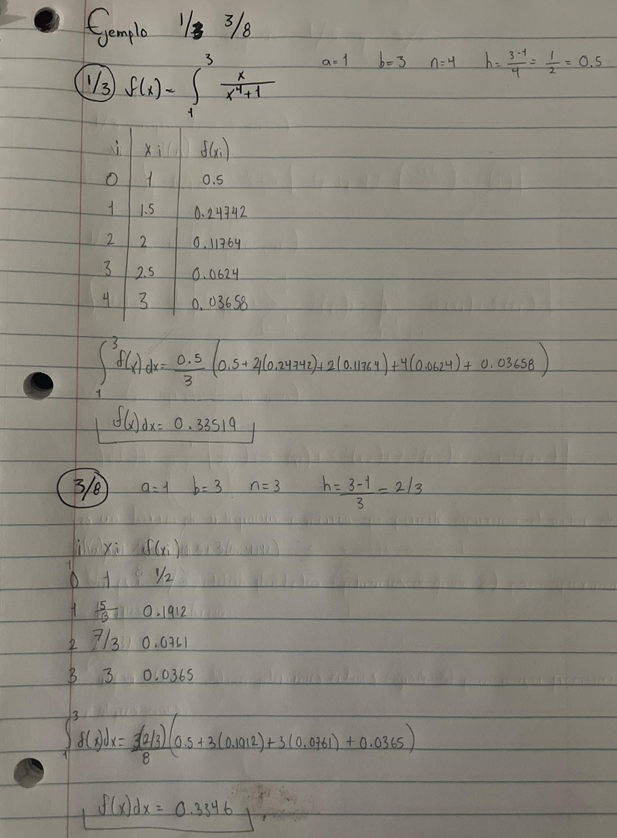 Ejemplo 1/3 3/8
a=1 b=3 n=4 h=\frac{3-1}{4}=\frac{1}{2}=0.5
1/3 f(x)=\int_{1}^{3} \frac{x}{x^4+1}
i xi f(xi)
0 1 0.5
1 1.5 0.24742
2 2 0.11764
3 2.5 0.0624
4 3 0.03658
\int_{1}^{3} f(x)dx=\frac{0.5}{3}(0.5+4(0.24742)+2(0.11764)+4(0.0624)+0.03658)
f(x)dx=0.33519
3/8 a=1 b=3 n=3 h=\frac{3-1}{3}=2/3
i xi f(xi)
0 1 1/2
1 \frac{5}{3} 0.1912
2 7/3 0.0761
3 3 0.0365
\int_{1}^{3} f(x)dx=\frac{3(2/3)}{8}(0.5+3(0.1912)+3(0.0761)+0.0365)
f(x)dx=0.3346